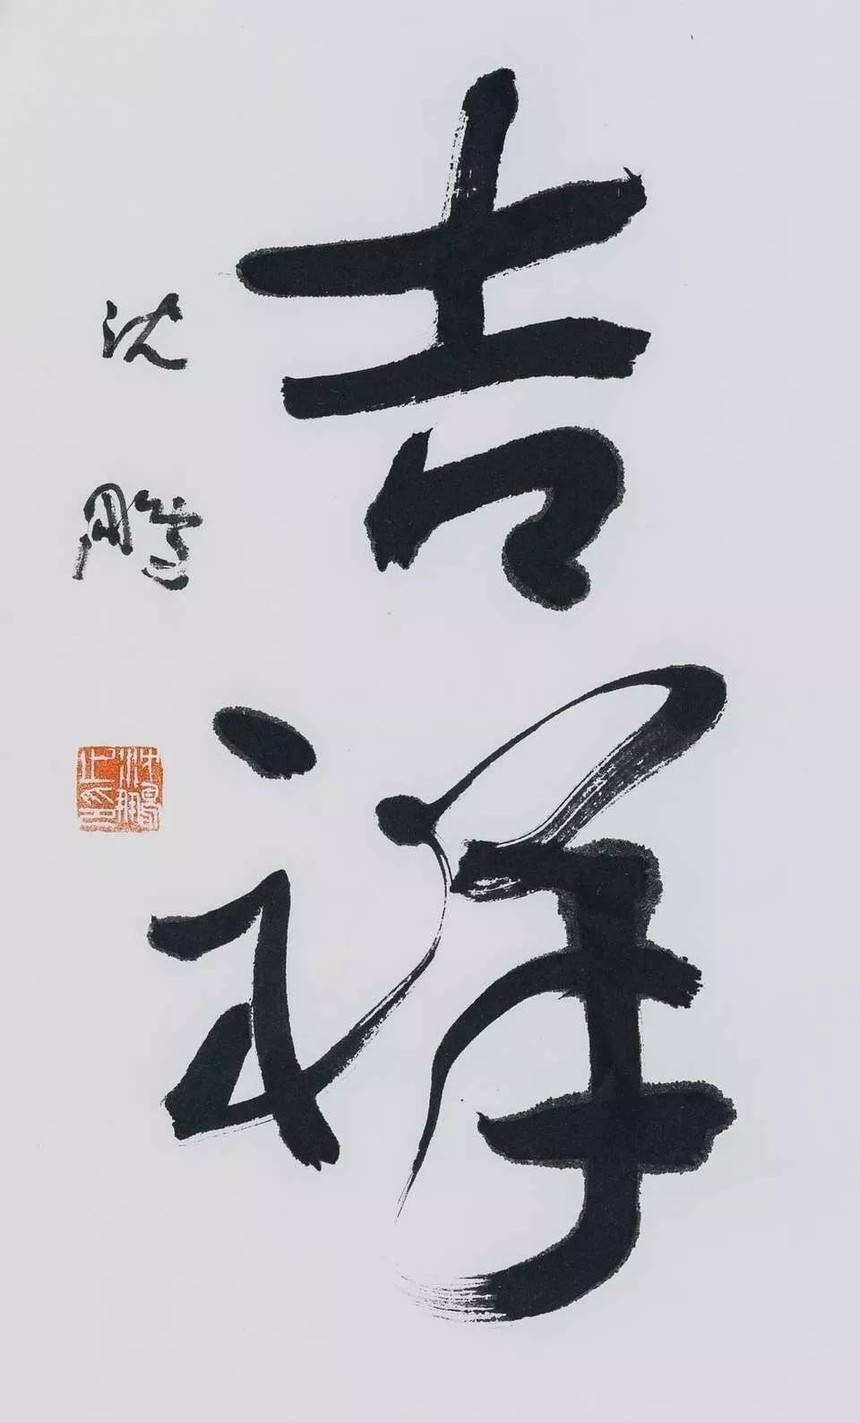 吉祥
沈鹏
沈鹏之印